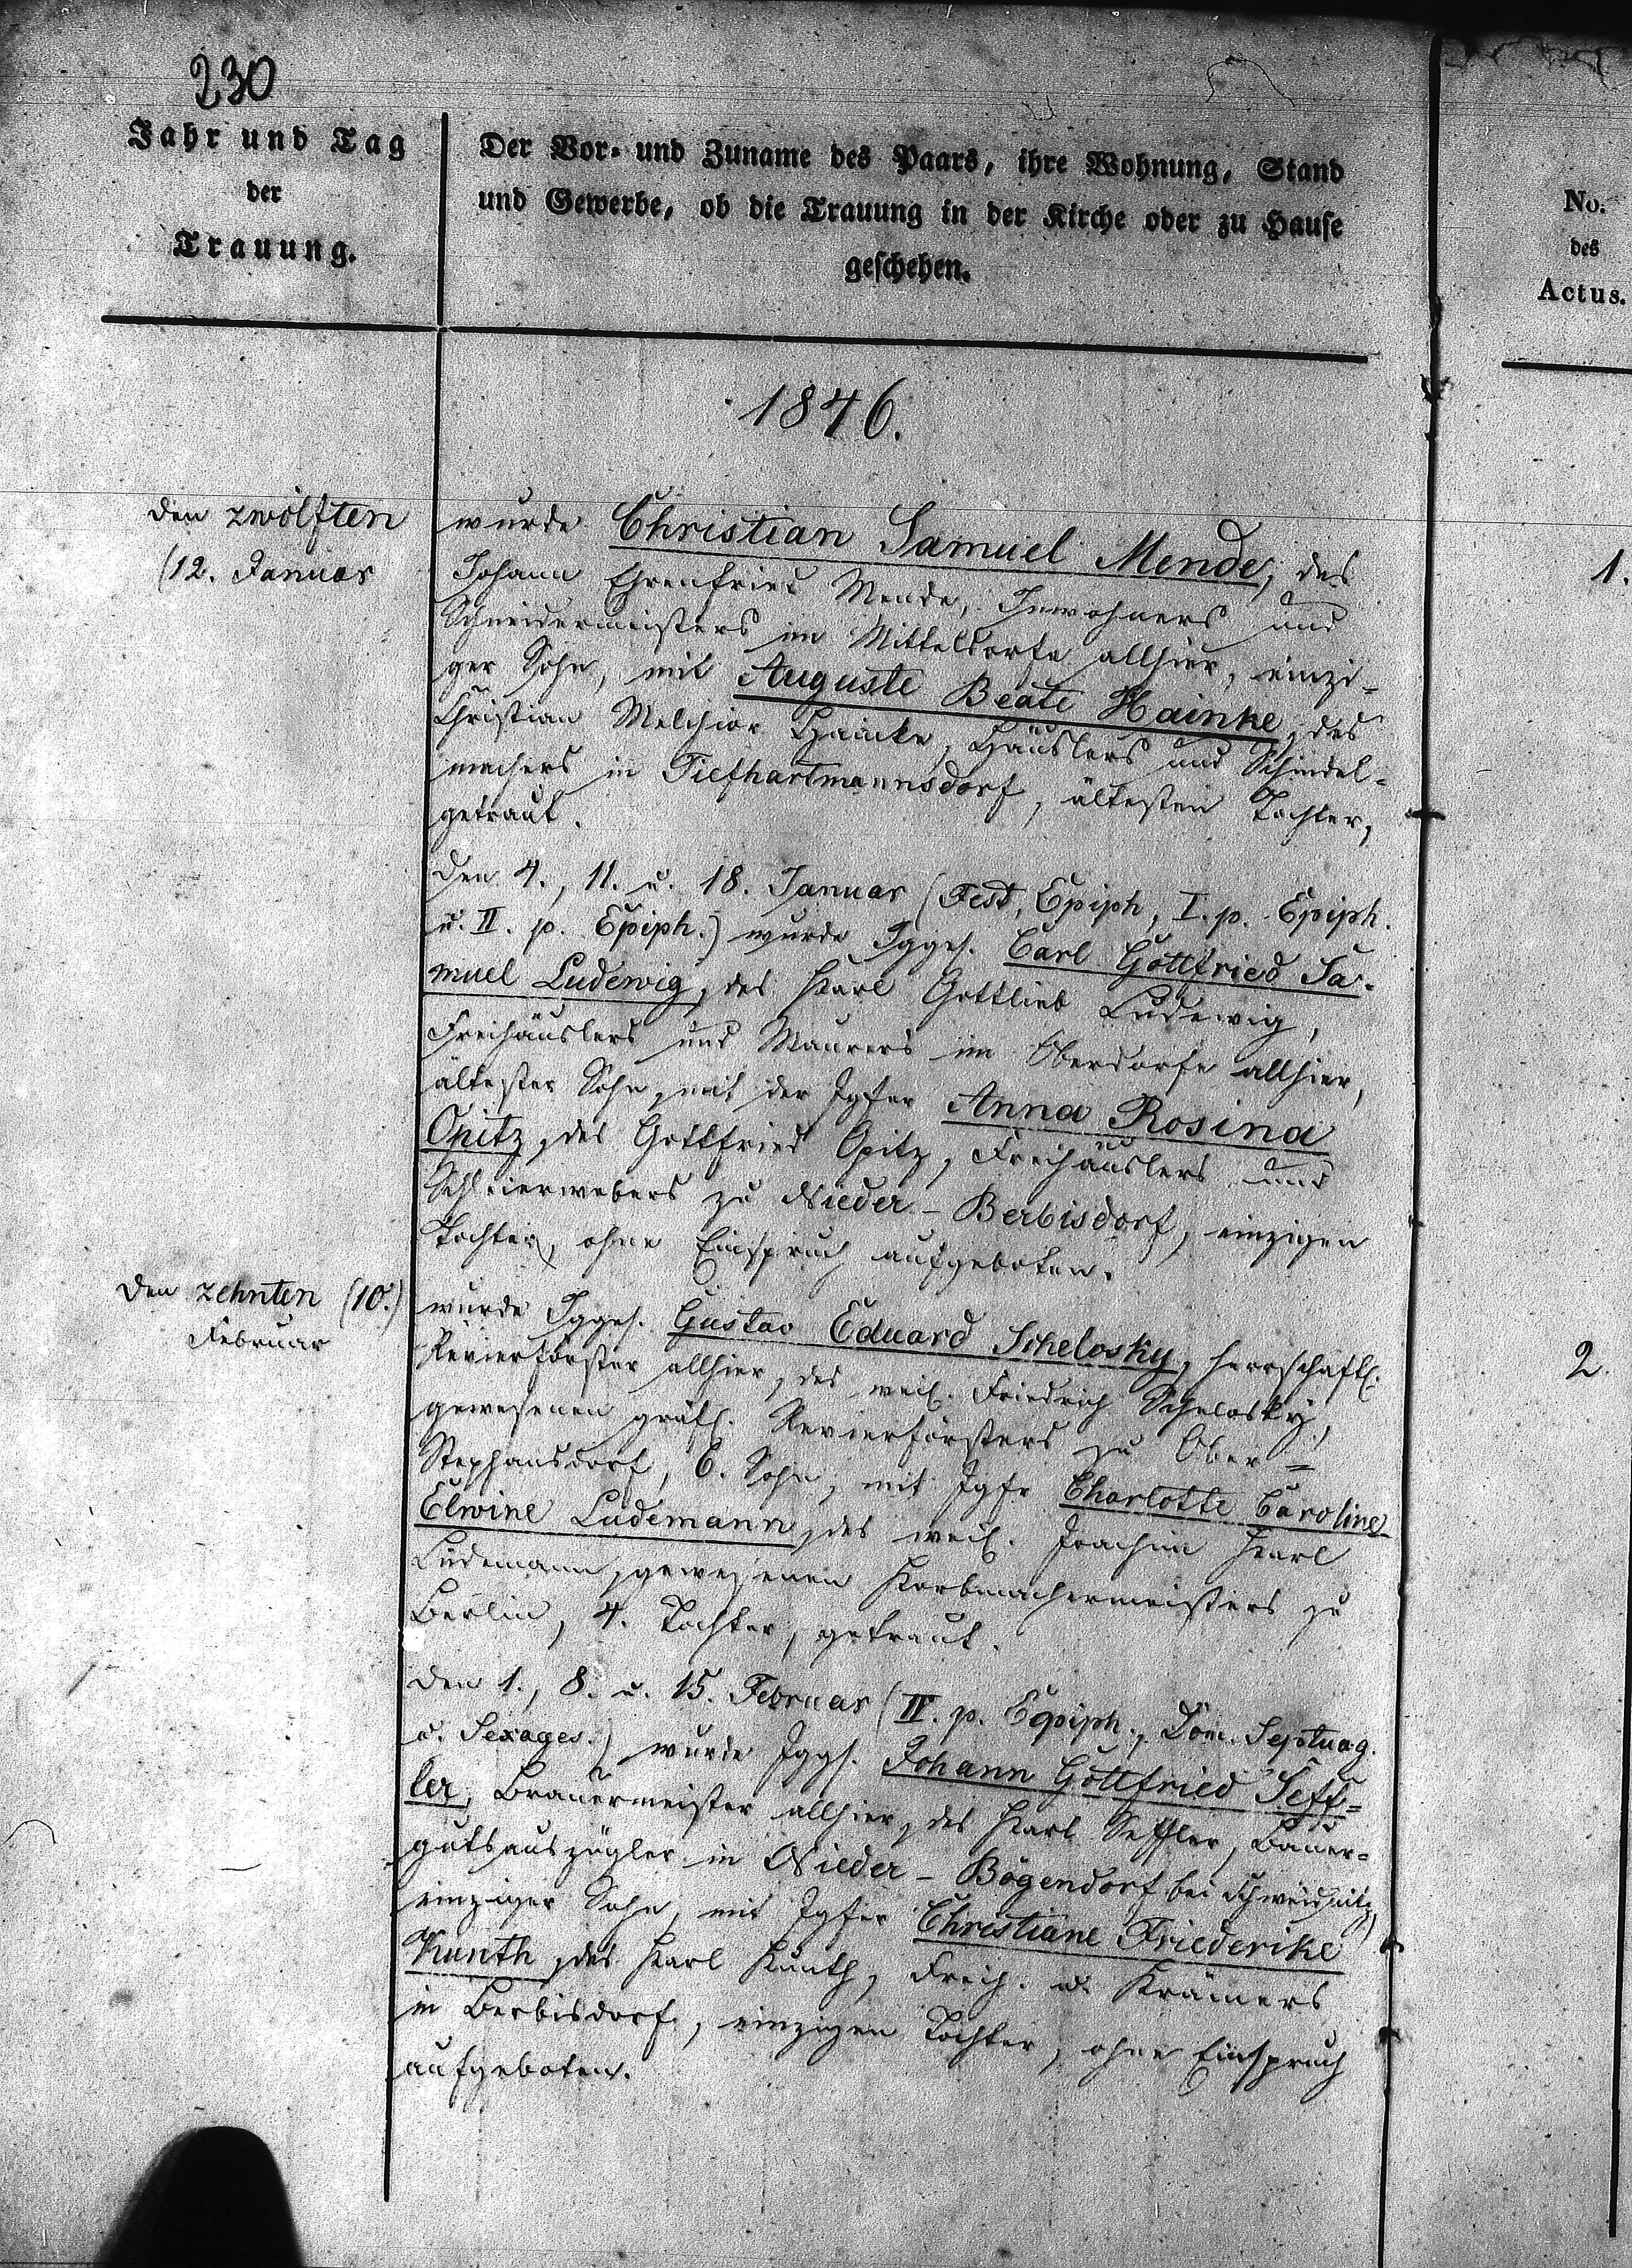 230
Jahr und Tag
der
Trauung.
Der Vor- und Zuname des Paars, ihre Wohnung, Stand
und Gewerbe, ob die Trauung in der Kirche oder zu Hause
geschehen.
No.
des
Actus.
1846.
den zwölften
(12. Januar
wurde Christian Samuel Mende, des
Johann Ehrenfried Mende, Inwohners und
Schneidermeisters im Mitteldorfe allhier, einzi-
ger Sohn, mit Auguste Beate Hainke, des
Christian Melchior Hainke, Häuslers und Schindel-
machers in Tiefhartmannsdorf, ältesten Tochter,
getraut.
1.
Den 4., 11. u. 18. Januar (Fest. Epiph, I. p. Epiph.
u. II. p. Epiph.) wurde Jgges. Carl Gottfried Sa-
muel Ludewig, des Karl Gottlieb Ludewig,
Freihäuslers und Maurers im Oberdorfe allhier,
ältester Sohn, mit der Jgfer Anna Rosina
Opitz, des Gottfried Opitz, Freihäuslers und
Schleierwebers zu Nieder-Berbisdorf, einzigen
Tochter, ohne Einspruch aufgeboten.
den zehnten (10.)
Februar
wurde Jgges. Gustav Eduard Schelosky, herrschaftl.
Revierförster allhier, des weil. Friedrich Schelosky,
gewesenen gräfl. Revierförsters zu Ober-
Stephansdorf, 6. Sohn, mit Jgfr Charlotte Caroline
Elwine Ludemann, des weil. Joachim Karl
Ludemann, gewesenen Korbmachermeisters zu
Berlin, 4. Tochter, getraut.
2.
Den 1., 8. u. 15. Februar (IV. p. Epiph., Dom. Septuag.
u. Sexages.) wurde Jggs. Johann Gottfried Seff-
ler, Brauermeister allhier, des Karl Seffler, Bauer-
gutsauszügler in Nieder-Bögendorf bei Schweidnitz,
einziger Sohn, mit Jgfer Christiane Friederike
Kunth, des Karl Kunth, Freih. u. Krämers
in Berbisdorf, einzigen Tochter, ohne Einspruch
aufgeboten.